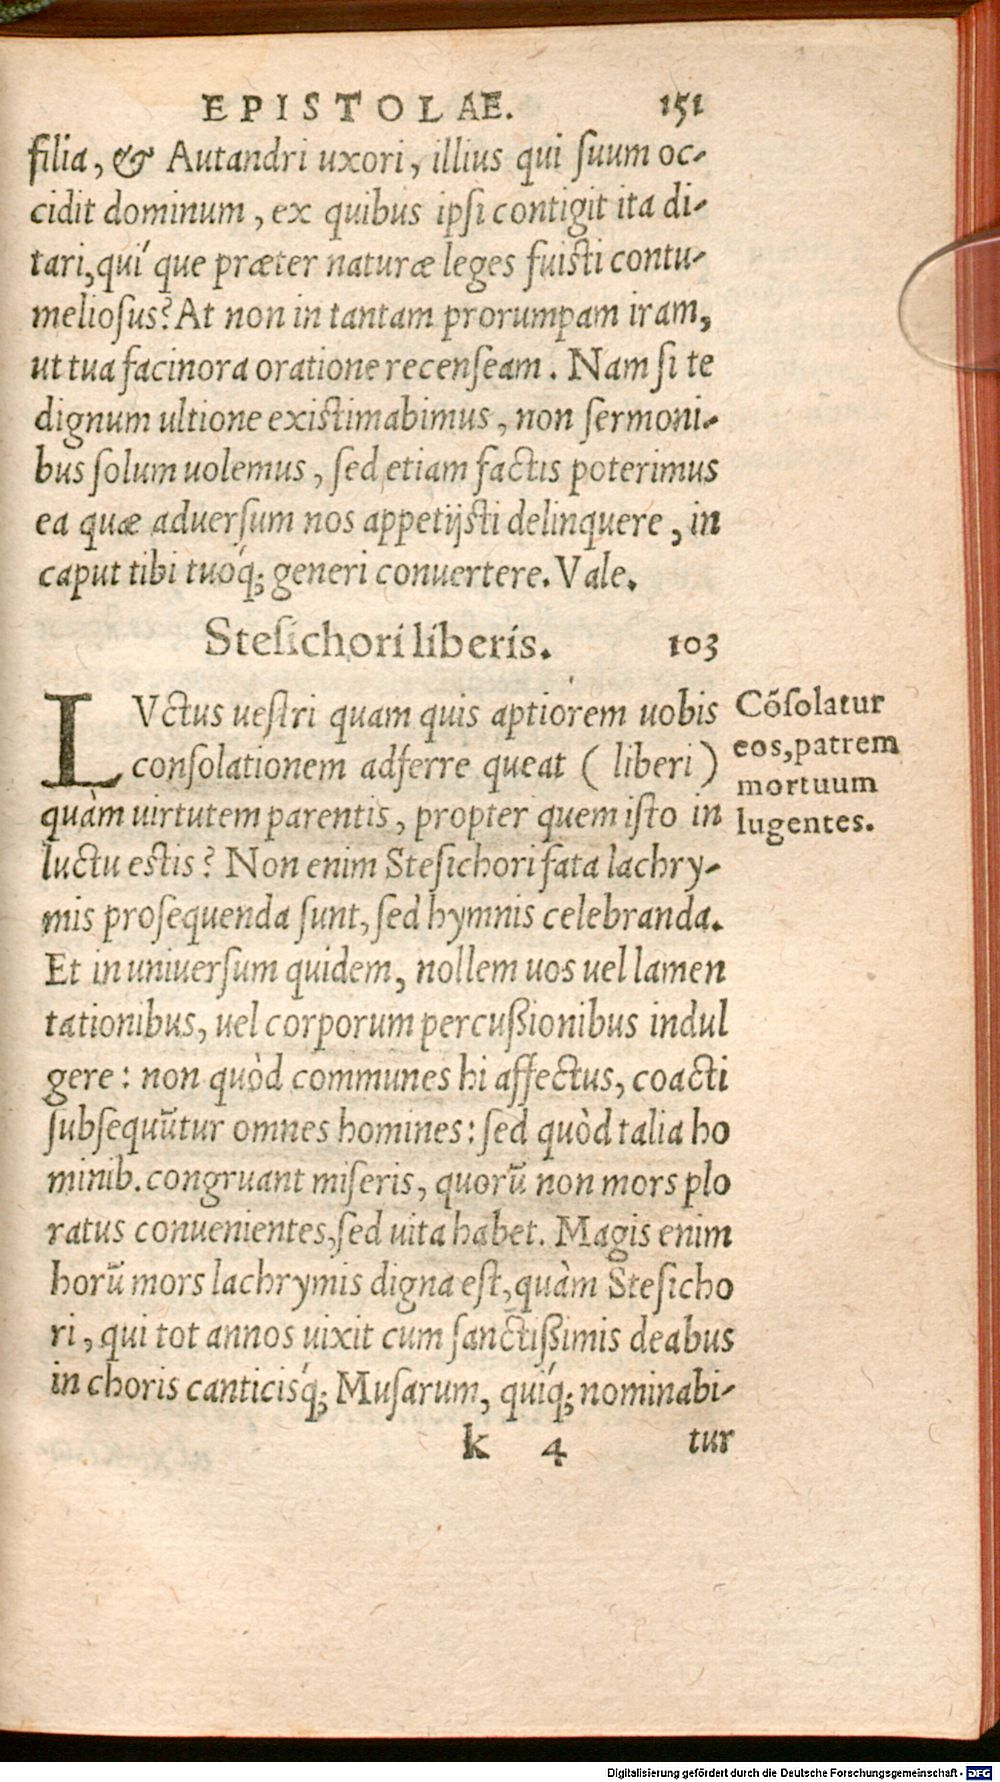 EPISTOLAE. 151
filia, & Autandri uxori, illius qui ſuum oc-
cidit dominum, ex quibus ipſi contigit ita di-
tari, quí que præter naturæ leges fuiſti contu-
melioſus? At non in tantam prorumpam iram,
ut tua facinora oratione recenſeam. Nam ſi te
dignum ultione exiſtimabimus, non ſermoni-
bus ſolum uolemus, ſed etiam factis poterimus
ea quæ aduerſum nos appetijſti delinquere, in
caput tibi tuóq; generi conuertere. Vale.
Steſichori liberis. 103
LVctus ueſtri quam quis aptiorem uobis
conſolationem adferre queat (liberi)
quàm uirtutem parentis, propter quem iſto in
luctu eſtis? Non enim Steſichori fata lachry-
mis proſequenda ſunt, ſed hymnis celebranda.
Et in uniuerſum quidem, nollem uos uel lamen
tationibus, uel corporum percußionibus indul
gere: non quòd communes hi affectus, coacti
ſubſequũtur omnes homines: ſed quòd talia ho
minib. congruant miſeris, quorũ non mors plo
ratus conuenientes, ſed uita habet. Magis enim
horũ mors lachrymis digna eſt, quàm Steſicho
ri, qui tot annos uixit cum ſanctißimis deabus
in choris canticisq́; Muſarum, quiq́; nominabi-
k 4 tur
Cõſolatur
eos, patrem
mortuum
lugentes.
Digitalisierung gefördert durch die Deutsche Forschungsgemeinschaft - DFG